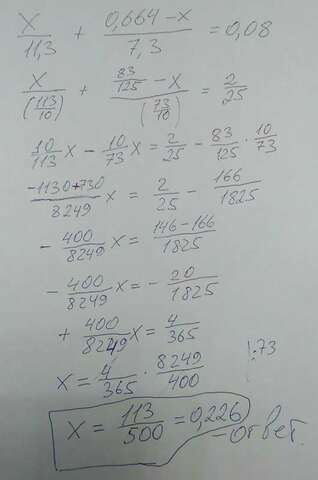 x/11,3 + (0,664 - x)/7,3 = 0,08
x/(113/10) + (83/125 - x)/(73/10) = 2/25
10/113 x - 10/73 x = 2/25 - 83/125 · 10/73
(-1130+730)/8249 x = 2/25 - 166/1825
- 400/8249 x = (146-166)/1825
- 400/8249 x = - 20/1825
+ 400/8249 x = 4/365
x = 4/365 · 8249/400 |:73
x = 113/500 = 0,226 - ответ.